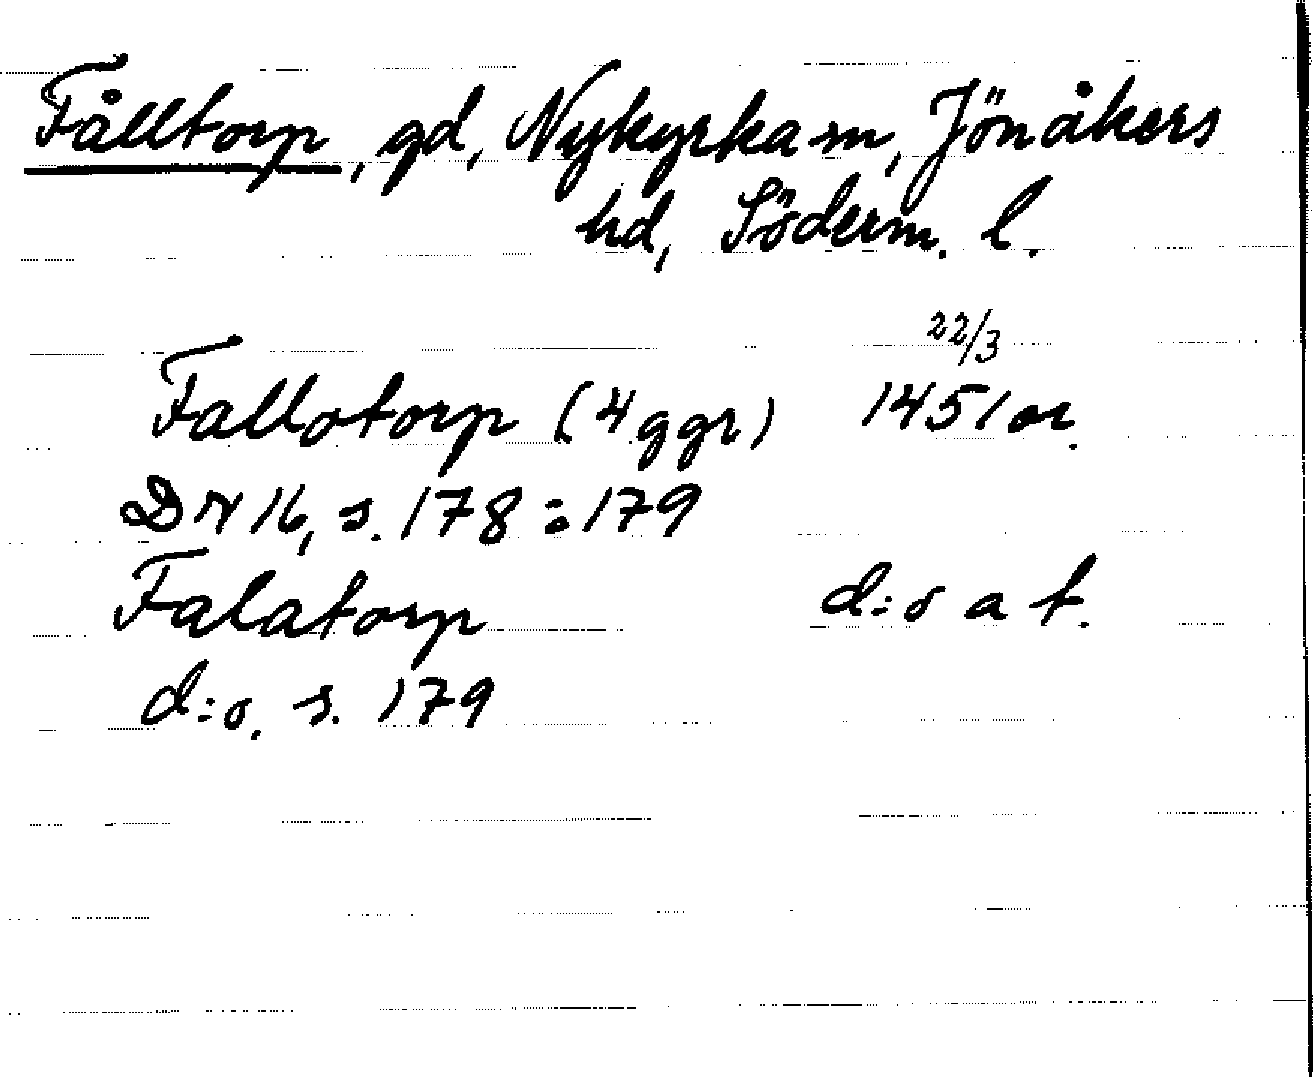 Fålltorp, gd, Nykyrka sn, Jönåkers
hd, Söderm. l.
22/3
Fallotorp (4 ggr) 1451 or.
DN 16, s. 178:179
Falatorp d:o a t.
d:o. s. 179